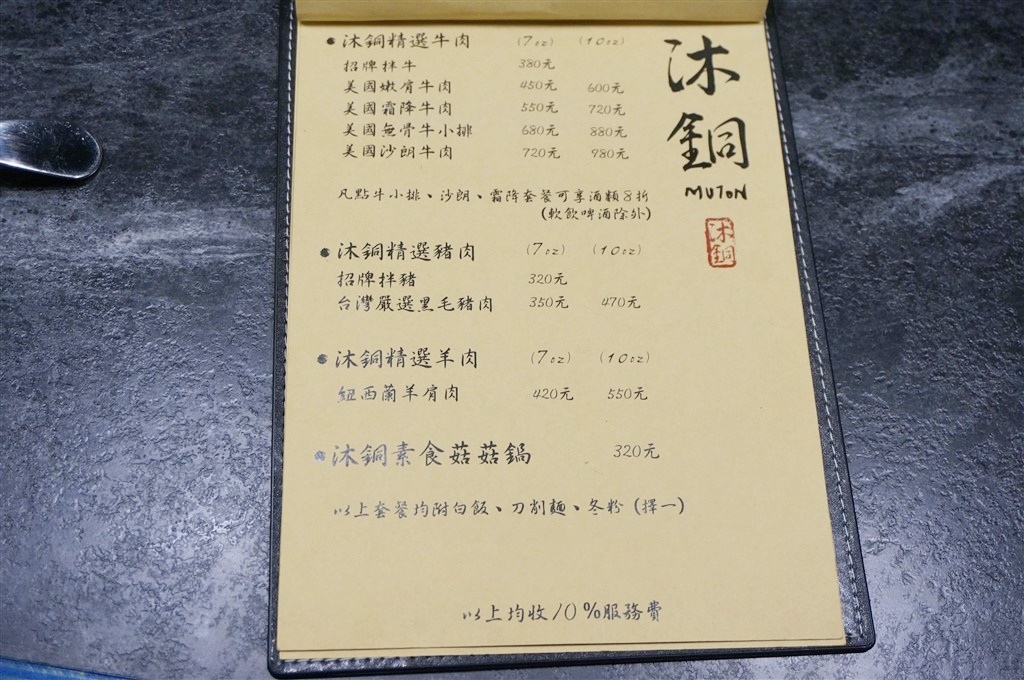 沐銅
MUTON
沐銅
沐銅精選牛肉 (7oz) (10oz)
招牌拌牛 380元
美國嫩肩牛肉 450元 600元
美國霜降牛肉 550元 720元
美國無骨牛小排 680元 880元
美國沙朗牛肉 720元 980元
凡點牛小排、沙朗、霜降套餐可享酒類8折
(軟飲啤酒除外)
沐銅精選豬肉 (7oz) (10oz)
招牌拌豬 320元
台灣嚴選黑毛豬肉 350元 470元
沐銅精選羊肉 (7oz) (10oz)
紐西蘭羊肩肉 420元 550元
沐銅素食菇菇鍋 320元
以上套餐均附白飯、刀削麵、冬粉 (擇一)
以上均收10%服務費